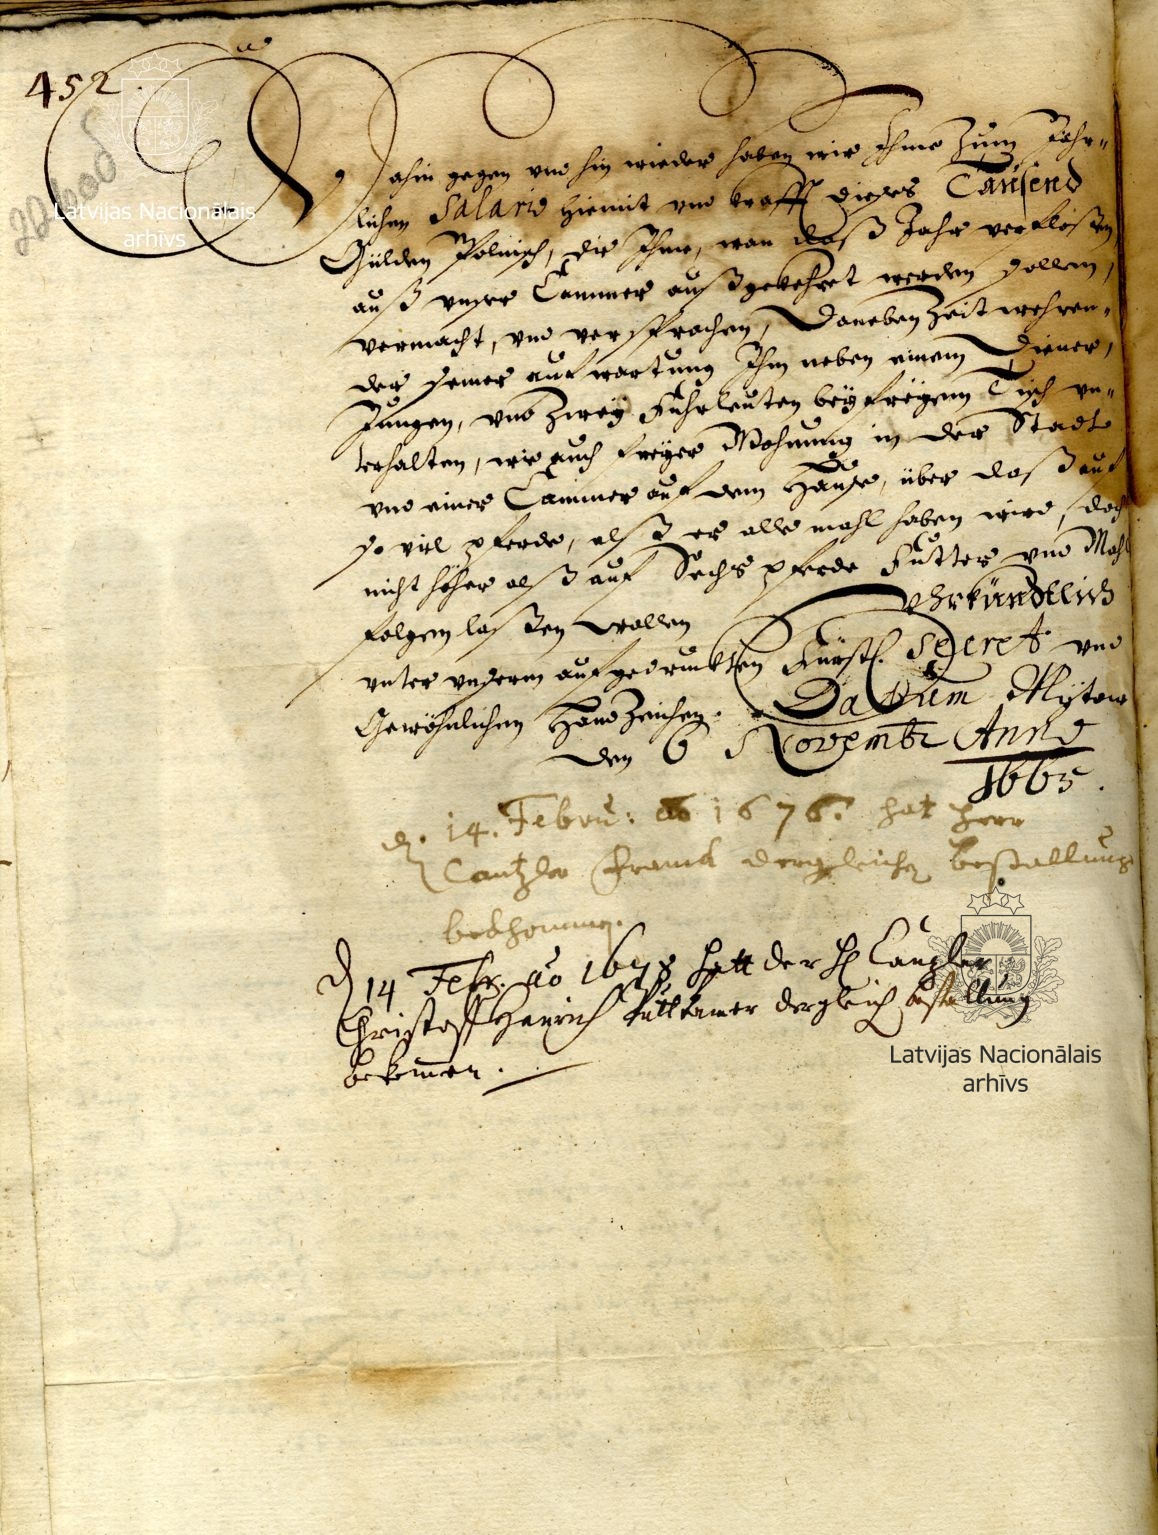 452
Dahingegen vnd hin wieder haben wir Ihme zum Jähr-
lichen Salario hiemit vnd krafft dieses Tausend
Gülden Polnisch, die Ihme, wan daß Jahr verfloßen
auß vnser Cammer außgekehret werden sollen,
vermacht, vnd versprochen, Daneben Zeit wehren-
der seiner aufwartung Ihm neben einem Diener,
Jungen, vnd zwey Fuhrleuten bey freyem Tisch vn-
terhalten, wie auch freyer Wohnung in der Stadt
vnd einer Cammer auf dem Hause, über daß auf
so viel pferde, alß er alle mahl haben wird, doch
nicht höher alß auf Sechs pferde Futter vnd Mahl
folgen laßen wollen Vhrkündtlich
vnter vnserm aufgedruckten Fürstl. Secret vnd
Gewöhnlichem Handzeichen. Datum Mytow
den 6 Novembr Anno
1665.
d. 14. Febru: ao 1676. hat Herr
Cantzler dergleichen bestallung
bekhommen.
d 14 Febr. ao 1678 hatt der H Cantzler
Christoff Heinrich Puttkamer dergleich bestallung
bekommen.
Latvijas Nacionālais
arhīvs
Latvijas Nacionālais
arhīvs